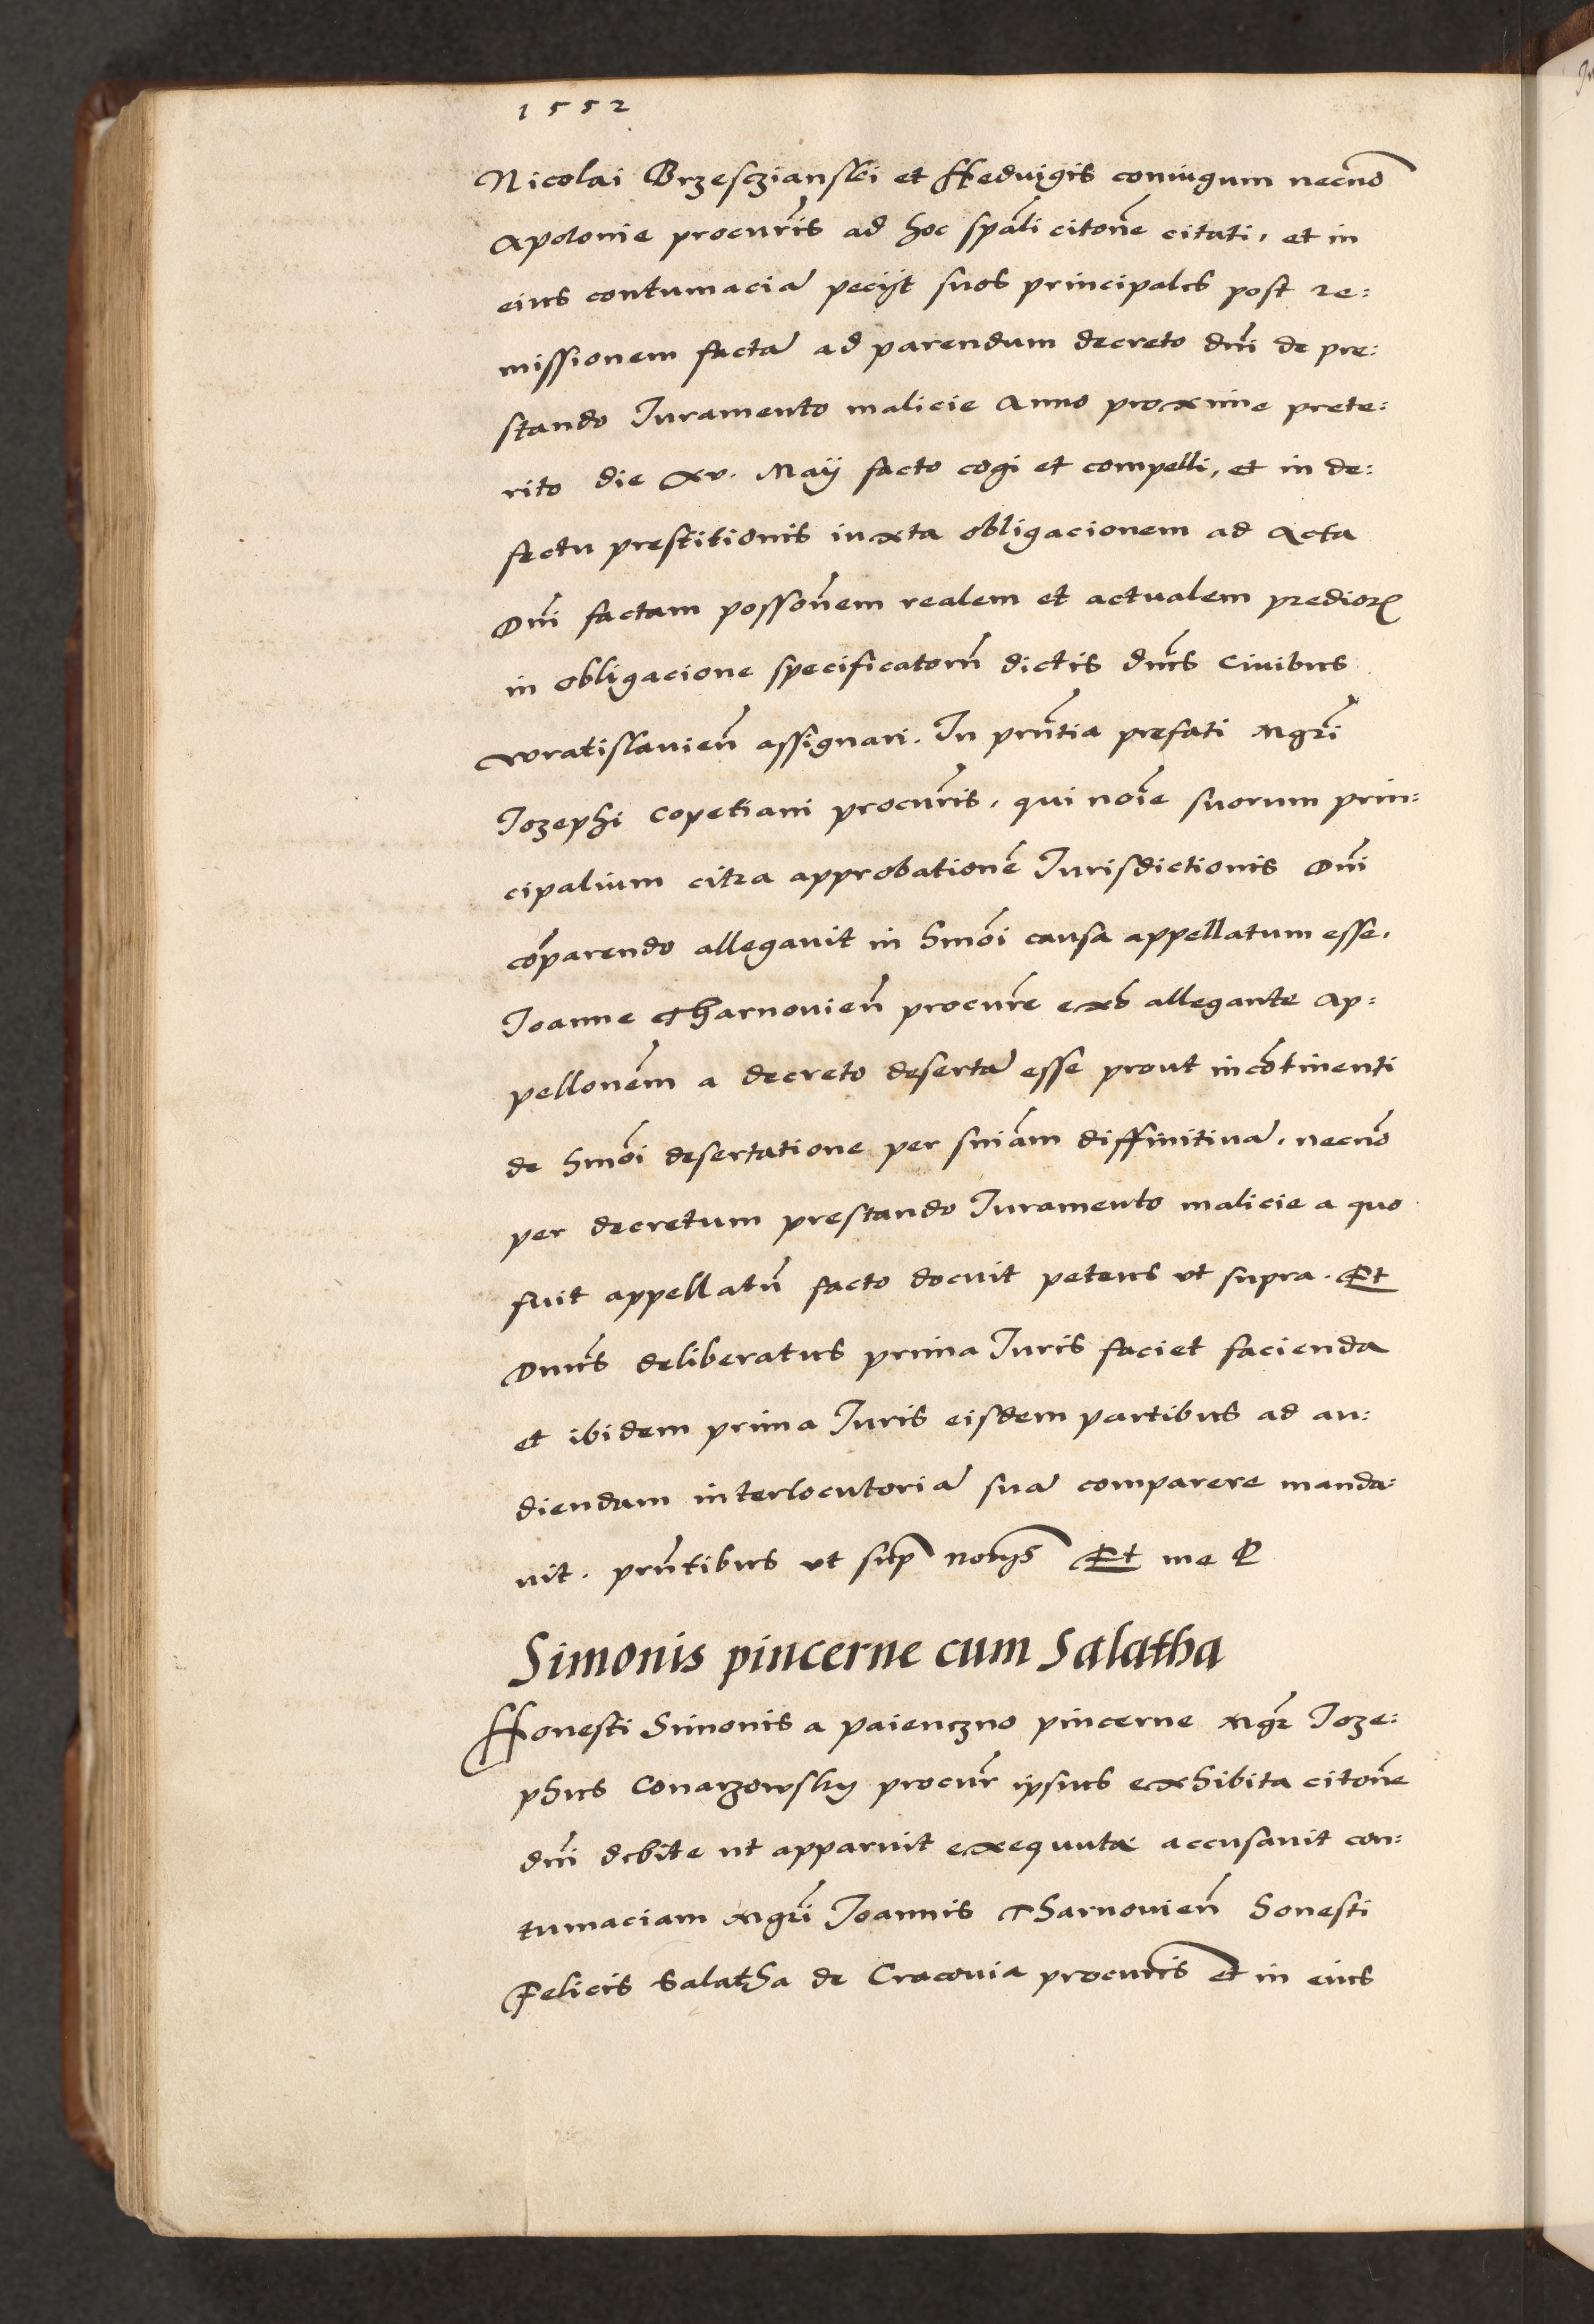 1552
Nicolai Brzesczianski et Hedvigis coniugum necno͂
Apolonie procur͂is ad hoc sp͂ali cito͂ne citati, et in
eius contumacia͂ peciit suos principales post re:
missionem facta͂ ad parendum decreto dn͂i de pre:
stando Iuramento malicie Anno proxime prete:
rito die xv. Maÿ facto cogi et compelli, et in de:
fectu prestitionis iuxta obligacionem ad Acta
Dn͂i factam posso͂nem realem et actualem predioꝝ
in obligacione specificatoru͂ dictis dn͂is Civibus
wratislavien͂ assignari. In pn͂tia prefati Mgr͂i
Iozephi Copetiani procur͂is, qui no͂ie suorum prin:
cipalium citra approbatione͂ Iurisdictionis Dn͂i
co͂parendo allegavit in hmo͂i causa appellatum esse.
Ioanne Tharnovien͂ procur͂e ex͂o allegante Ap:
pello͂nem a decreto deserta͂ esse prout inco͂tinenti
de hmo͂i desertatione per sn͂iam diffinitiva͂, necno͂
per decretum prestando Iuramento malicie a quo
fuit appellatu͂ facto docuit petens ut supra. Et
Dn͂us deliberatus prima Iuris faciet facienda
et ibidem prima Iuris eisdem partibus ad au:
diendam interlocutoria͂ sua͂ comparere manda:
vit. pn͂tibus ut sup͂ no͂ijs Et me
Simonis pincerne cum Salatha
Honesti Simonis a paienczno pincerne Mgr͂ Ioze:
phus Conarzowsky procur͂ ipsius exhibita cito͂ne
dn͂i debite ut apparuit exequuta accusavit con:
tumaciam Mgr͂i Ioannis Tharnovien͂ honesti
Felicis Salatha de Cracovia procur͂is et in eius